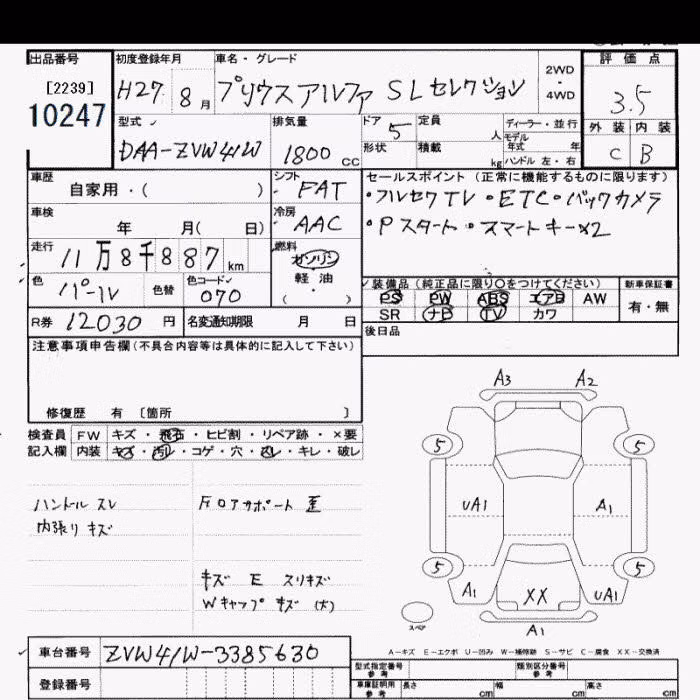 出品番号 初度登録年月 車名・グレード 2WD・4WD 評価点
[2239]
10247
H27 8月 プリウスアルファ SLセレクション 3.5
型式 排気量 ドア 定員 人 ディーラー・並行 外装 内装
DAA-ZVW41W 1800 CC 5 形状 積載 kg モデル年式 年 ハンドル 左・右 C B
車歴 自家用・( ) シフト FAT
セールスポイント (正常に機能するものに限ります)
・フルセグTV・ETC・バックカメラ
・Pスタート・スマートキー×2
車検 年 月( 日) 冷房 AAC
走行 11万8千887km 燃料 ガソリン 軽油 ( )
色 パール 色替 色コード 070
装備品(純正品に限り○をつけてください) 新車保証書
PS PW ABS エアB AW 有・無
SR ナビ TV カワ
R券 12030円 名変通知期限 月 日
後日品
注意事項申告欄(不具合内容等は具体的に記入して下さい)
修復歴 有 〔箇所 〕
検査員 FW キズ・飛石・ヒビ割・リペア跡・×要
記入欄 内装 キズ・汚レ・コゲ・穴・スレ・キレ・破レ
ハンドル スレ
内張り キズ
フロアサポート 歪
キズ E スリキズ
Wキャップ キズ (大)
A3 A2
5 5
UA1 A1
5 5
A1 XX UA1
スペア
A1
A…キズ E…エクボ U…凹み W…補修跡 S…サビ C…腐食 XX…交換済
車台番号 ZVW41W-3385630
登録番号
型式指定番号 参考 類別区分番号 参考
車庫証明用 参考 長さ cm 幅 cm 高さ cm